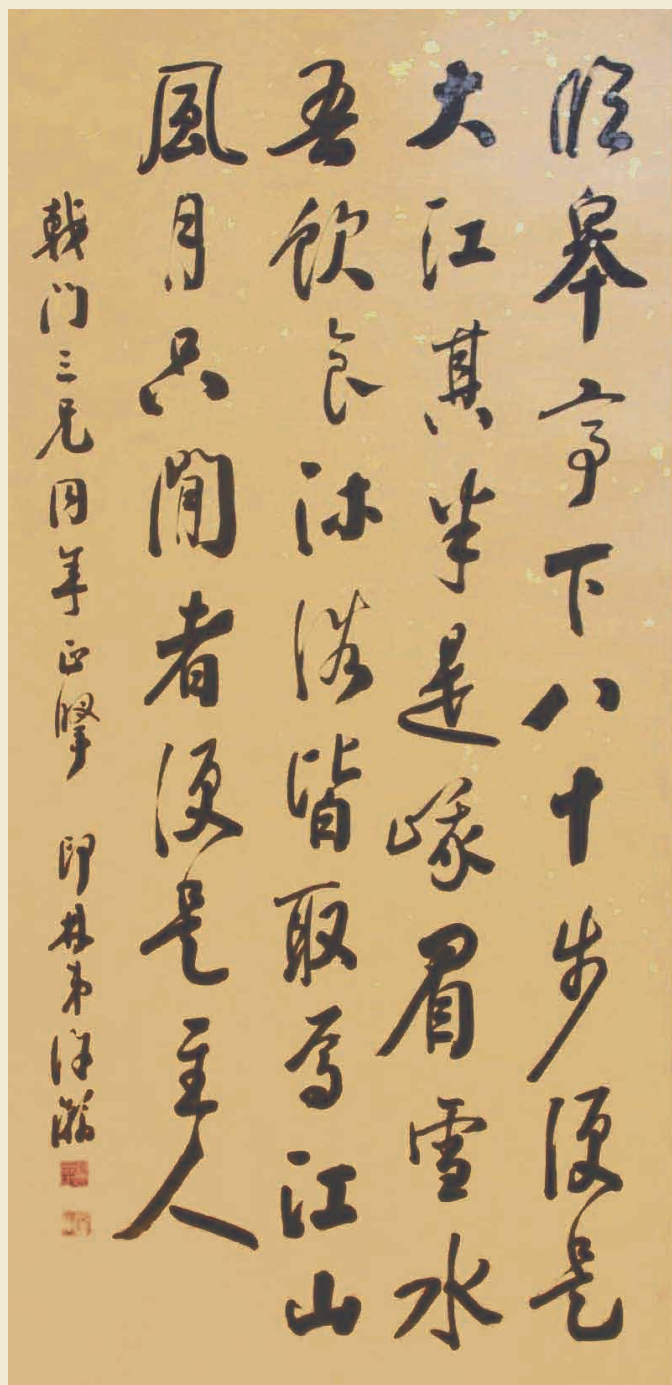 臨皋亭下八十步便是
大江其半是峨眉雪水
吾飲食沐浴皆取焉江山
風月只閒者便是主人
戟門三兄同年正 印林弟許瀚